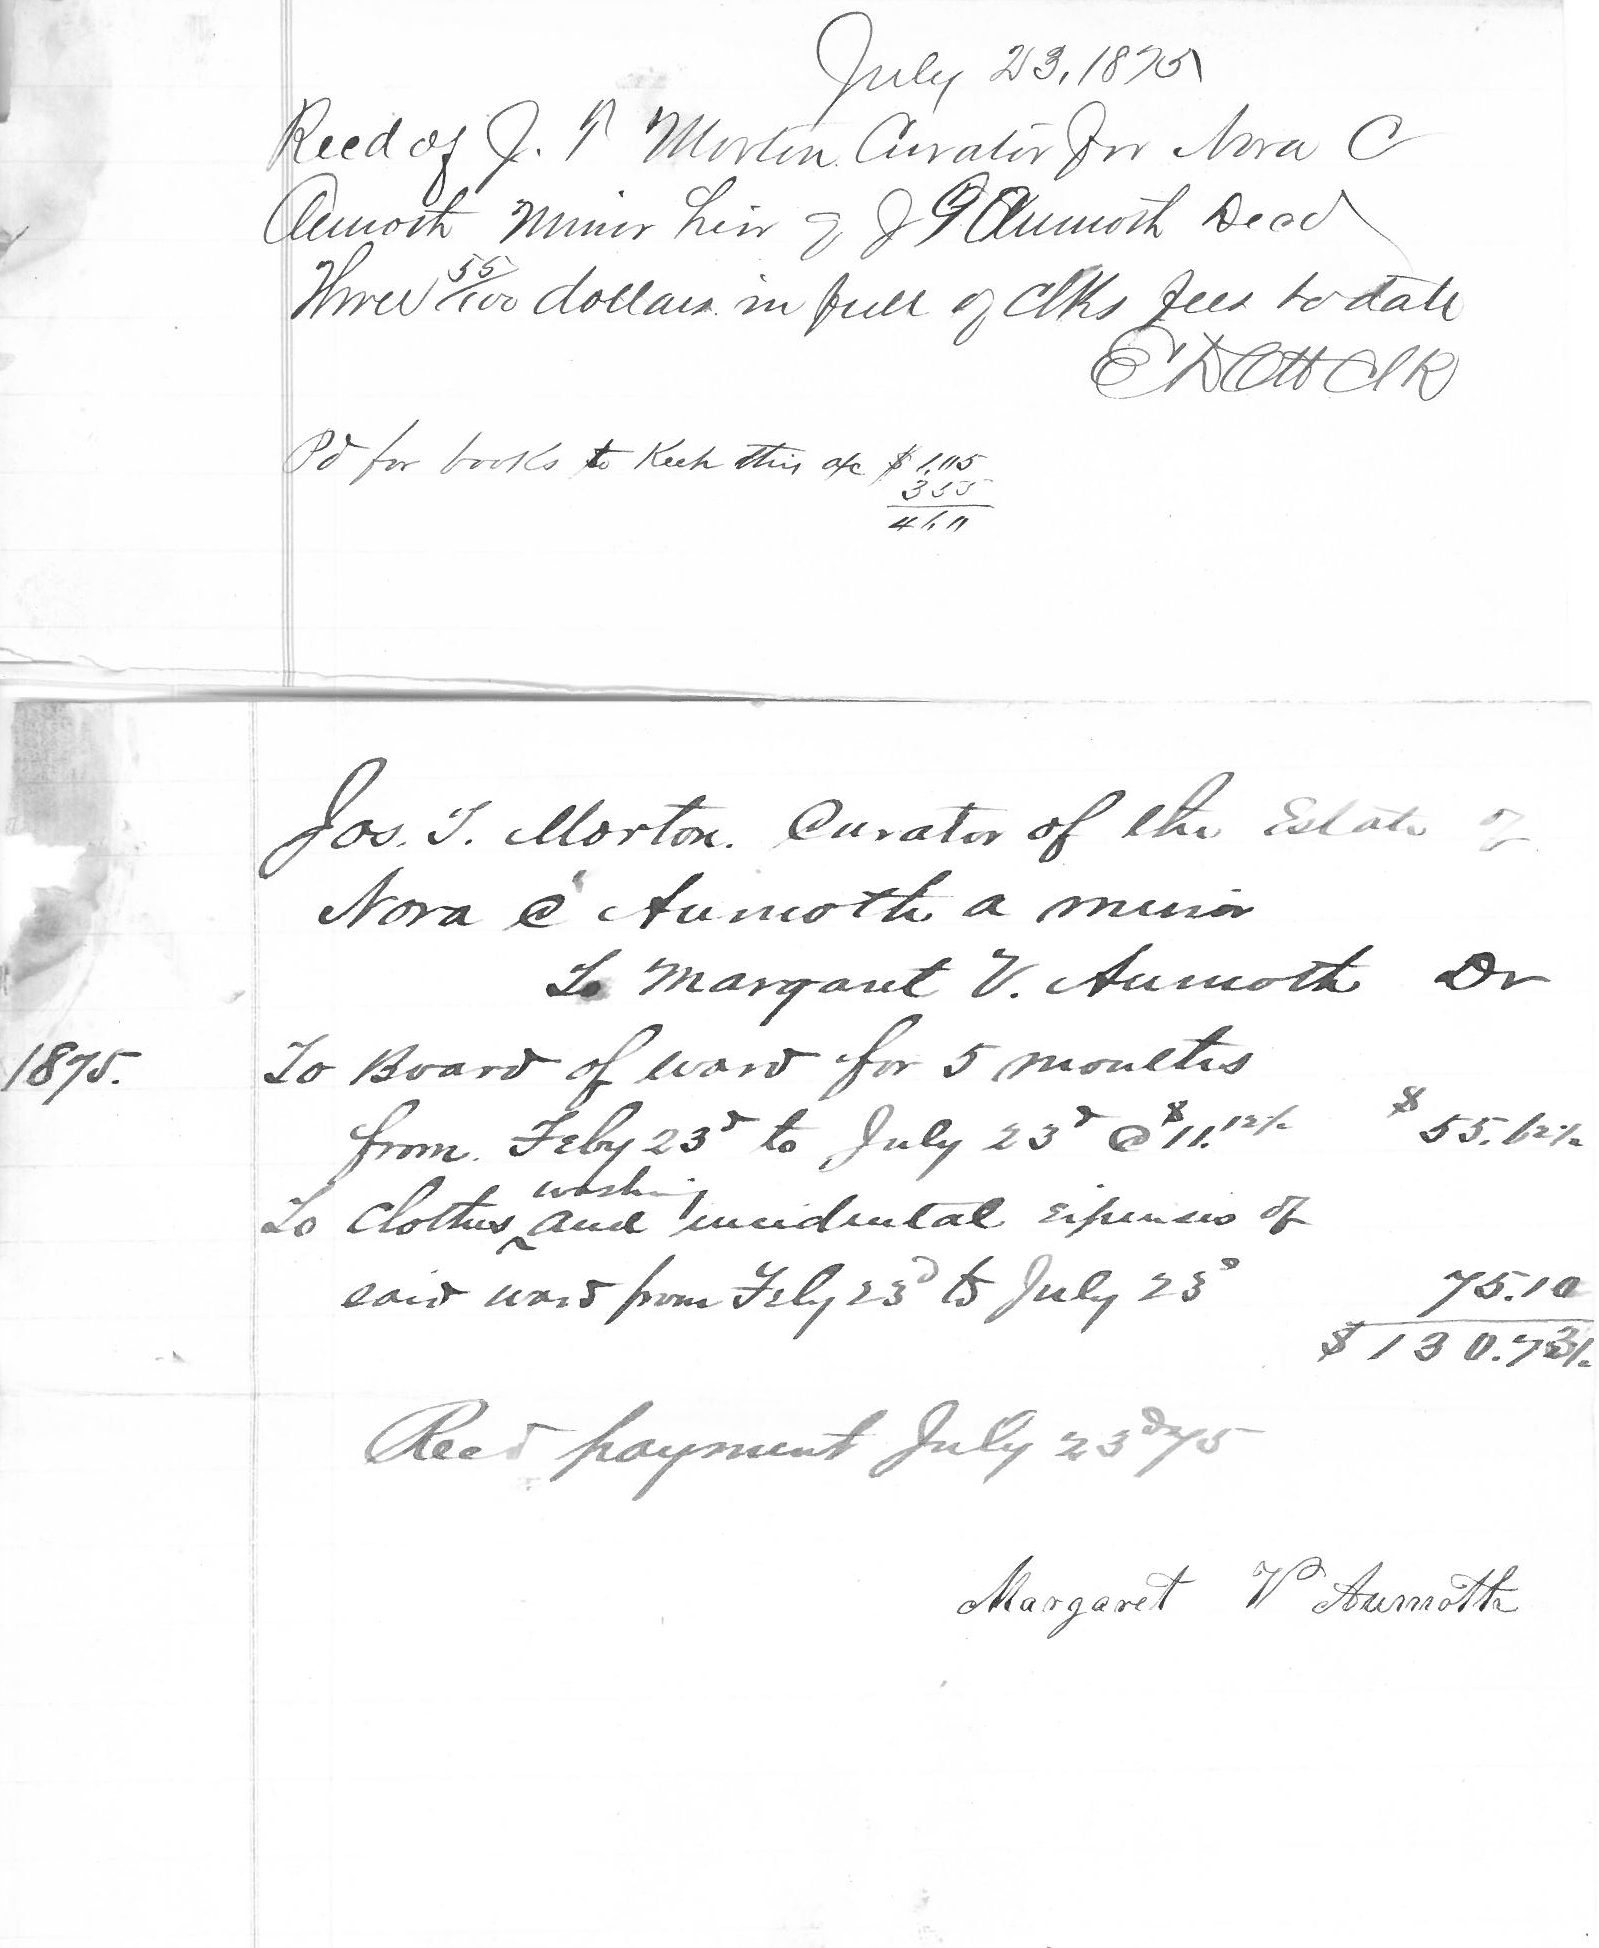 July 23, 1875
Recd of J. T Morton Curator for Nora C
Aumoth Minor heir of J G Aumoth Decd
Three 55/100 dollars in full of Clks fees to date
E D Ott Clk
Pd for books to Keep this a/c $1.05
3 55
4.60
Jos. T. Morton. Curator of the Estate of
Nora C Aumoth a minor
To Margaret V. Aumoth Dr
1875. To Board of ward for 5 months
from Feby 23d to July 23d @ $11.12½ $55.62½
To clothes washing and incidental expenses of
said ward from Feby 23d to July 23d 75.10
$130.73
Recd payment July 23d 75
Margaret V Aumoth